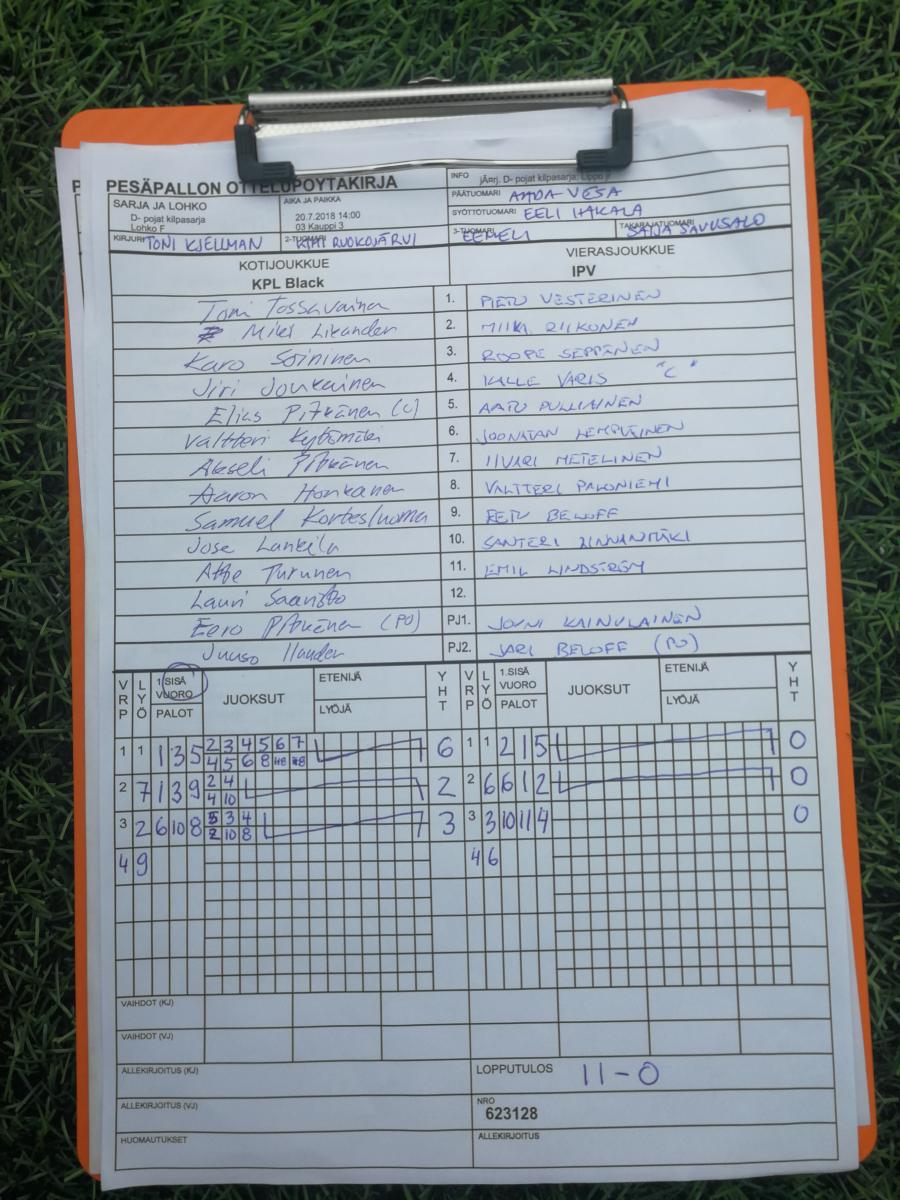 P
PESÄPALLON OTTELUPÖYTÄKIRJA
INFO jÄ¤rj. D- pojat kilpasarja, Lippo
SARJA JA LOHKO
D- pojat kilpasarja
Lohko F
AIKA JA PAIKKA
20.7.2018 14:00
03 Kauppi 3
PÄÄTUOMARI VESA
SYÖTTÖTUOMARI EELI HAKALA
KIRJURI TONI KJELLMAN 2-TUOMARI RUOKOJÄRVI 3-TUOMARI EEMELI TAKARAJATUOMARI SAIJA SAVUSALO
KOTIJOUKKUE VIERASJOUKKUE
KPL Black IPV
Tomi Tossavainen 1. PIETU VESTERINEN
Miki Likander 2. MIIKA RIIKONEN
Karo Soininen 3. ROOPE SEPPÄNEN
Jiri Joukainen 4. KALLE VARIS "C"
Elias Pitkänen (C) 5. AATU PULLIAINEN
Valtteri Kytömäki 6. JOONATAN LEMPIÄINEN
Akseli Pitkänen 7. IIVARI METELINEN
Aaron Honkanen 8. VALTTERI PALONIEMI
Samuel Kortesluoma 9. EETU BELOFF
Jose Lankila 10. SANTERI LINNANMÄKI
Atte Turunen 11. EMIL LINDSTRÖM
Lauri Saaristo 12.
Eero Pitkänen (PJ) PJ1. JOUNI KAINULAINEN
Juuso PJ2. JARI BELOFF (PJ)
VRP LYÖ 1.SISÄ VUORO PALOT JUOKSUT ETENIJÄ LYÖJÄ YHT VRP LYÖ 1.SISÄ VUORO PALOT JUOKSUT ETENIJÄ LYÖJÄ YHT
1 1 1 3 5 2 3 4 5 6 7 6 1 1 2 1 5 0
4 5 6 8
2 7 1 3 9 2 4 2 2 6 6 1 2 0
4 10
3 2 6 10 8 5 3 4 3 3 3 10 11 4 0
2 10 8
4 9 4 6
VAIHDOT (KJ)
VAIHDOT (VJ)
ALLEKIRJOITUS (KJ) LOPPUTULOS 11-0
ALLEKIRJOITUS (VJ) NRO 623128
HUOMAUTUKSET ALLEKIRJOITUS